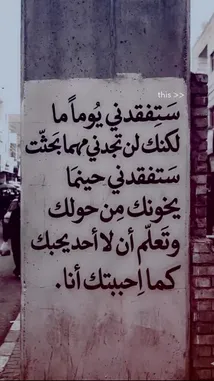 this >>
سَتفقدني يُوماً ما
لكنك لن تجدني مهما بَحثّت
سَتفقدني حينمَا
يخونك مِن حولك
وتَعلّم أن لا أحد يحبك
كما اِحببتك أنا.